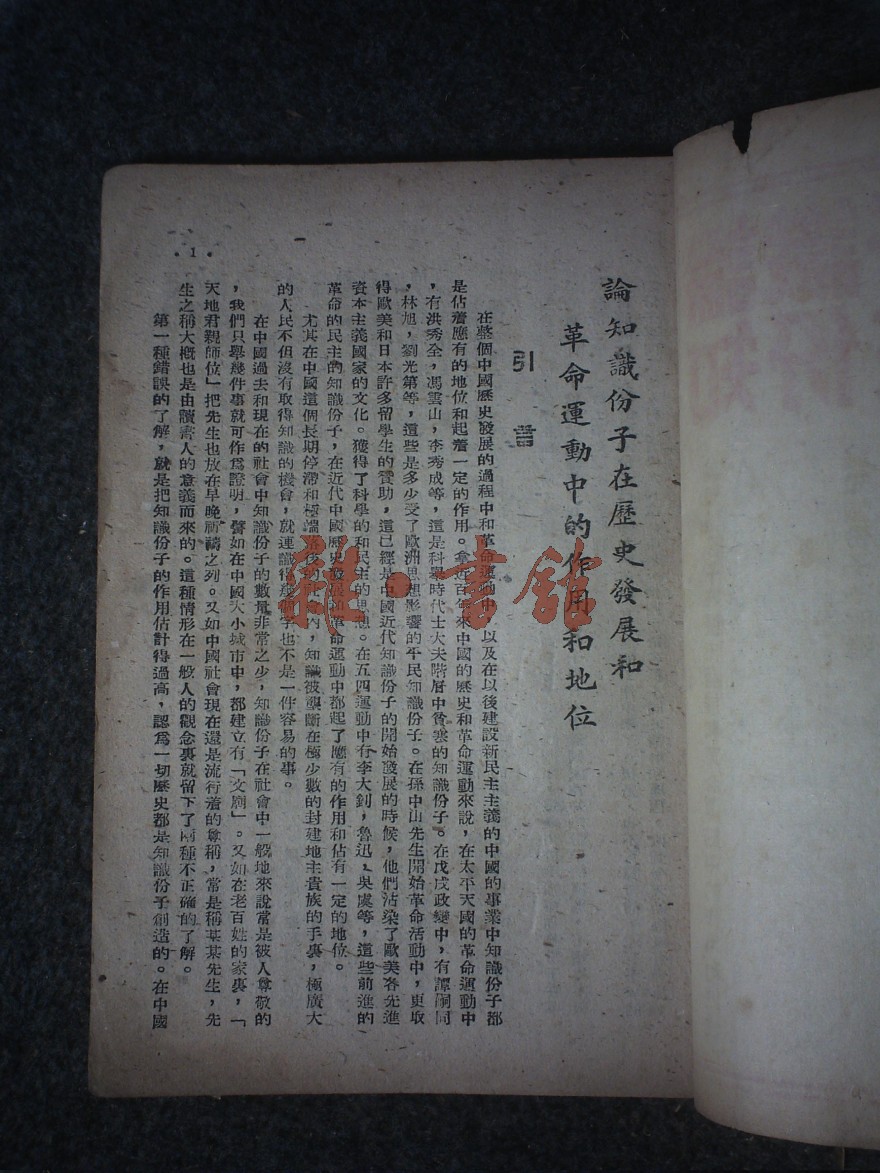 論知識份子在歷史發展和
革命運動中的作用和地位
引言
在整個中國歷史發展的過程中和革命運動中,以及在以後建設新民主主義的中國的事業中知識份子都
是佔着應有的地位和起着一定的作用。拿近百年來中國的歷史和革命運動來說,在太平天國的革命運動中
,有洪秀全,馮雲山,李秀成等,這是科舉時代士大夫階層中貧寒的知識份子。在戊戌政變中,有譚嗣同
,林旭,劉光第等,這些是多少受了歐洲思想影響的平民知識份子。在孫中山先生開始革命活動中,更取
得歐美和日本許多留學生的贊助,這已經是中國近代知識份子的開始發展的時候,他們沾染了歐美各先進
資本主義國家的文化。獲得了科學的和民主的思想。在五四運動中有李大釗,魯迅,吳虞等,這些前進的
革命的民主的知識份子,在近代中國歷史發展和革命運動中都起了應有的作用和佔有一定的地位。
尤其在中國這個長期停滯和極端落後的內,知識被壟斷在極少數的封建地主貴族的手裏,極廣大
的人民不但沒有取得知識的機會,就連識得幾個字也不是一件容易的事。
在中國過去和現在的社會中知識份子的數量非常之少,知識份子在社會中一般地來說當是被人尊敬的
,我們只舉幾件事就可作爲證明,譬如在中國大小城市中,都建立有「文廟」。又如在老百姓的家裏,「
天地君親師位」把先生也放在早晚祈禱之列。又如中國社會現在還是流行着的尊稱,常是稱某某先生,先
生之稱大概也是由讀書人的意義而來的。這種情形在一般人的觀念裏就留下了兩種不正確的了解。
第一種錯誤的了解,就是把知識份子的作用估計得過高,認爲一切歷史都是知識份子創造的。在中國
·1·
雜·書館